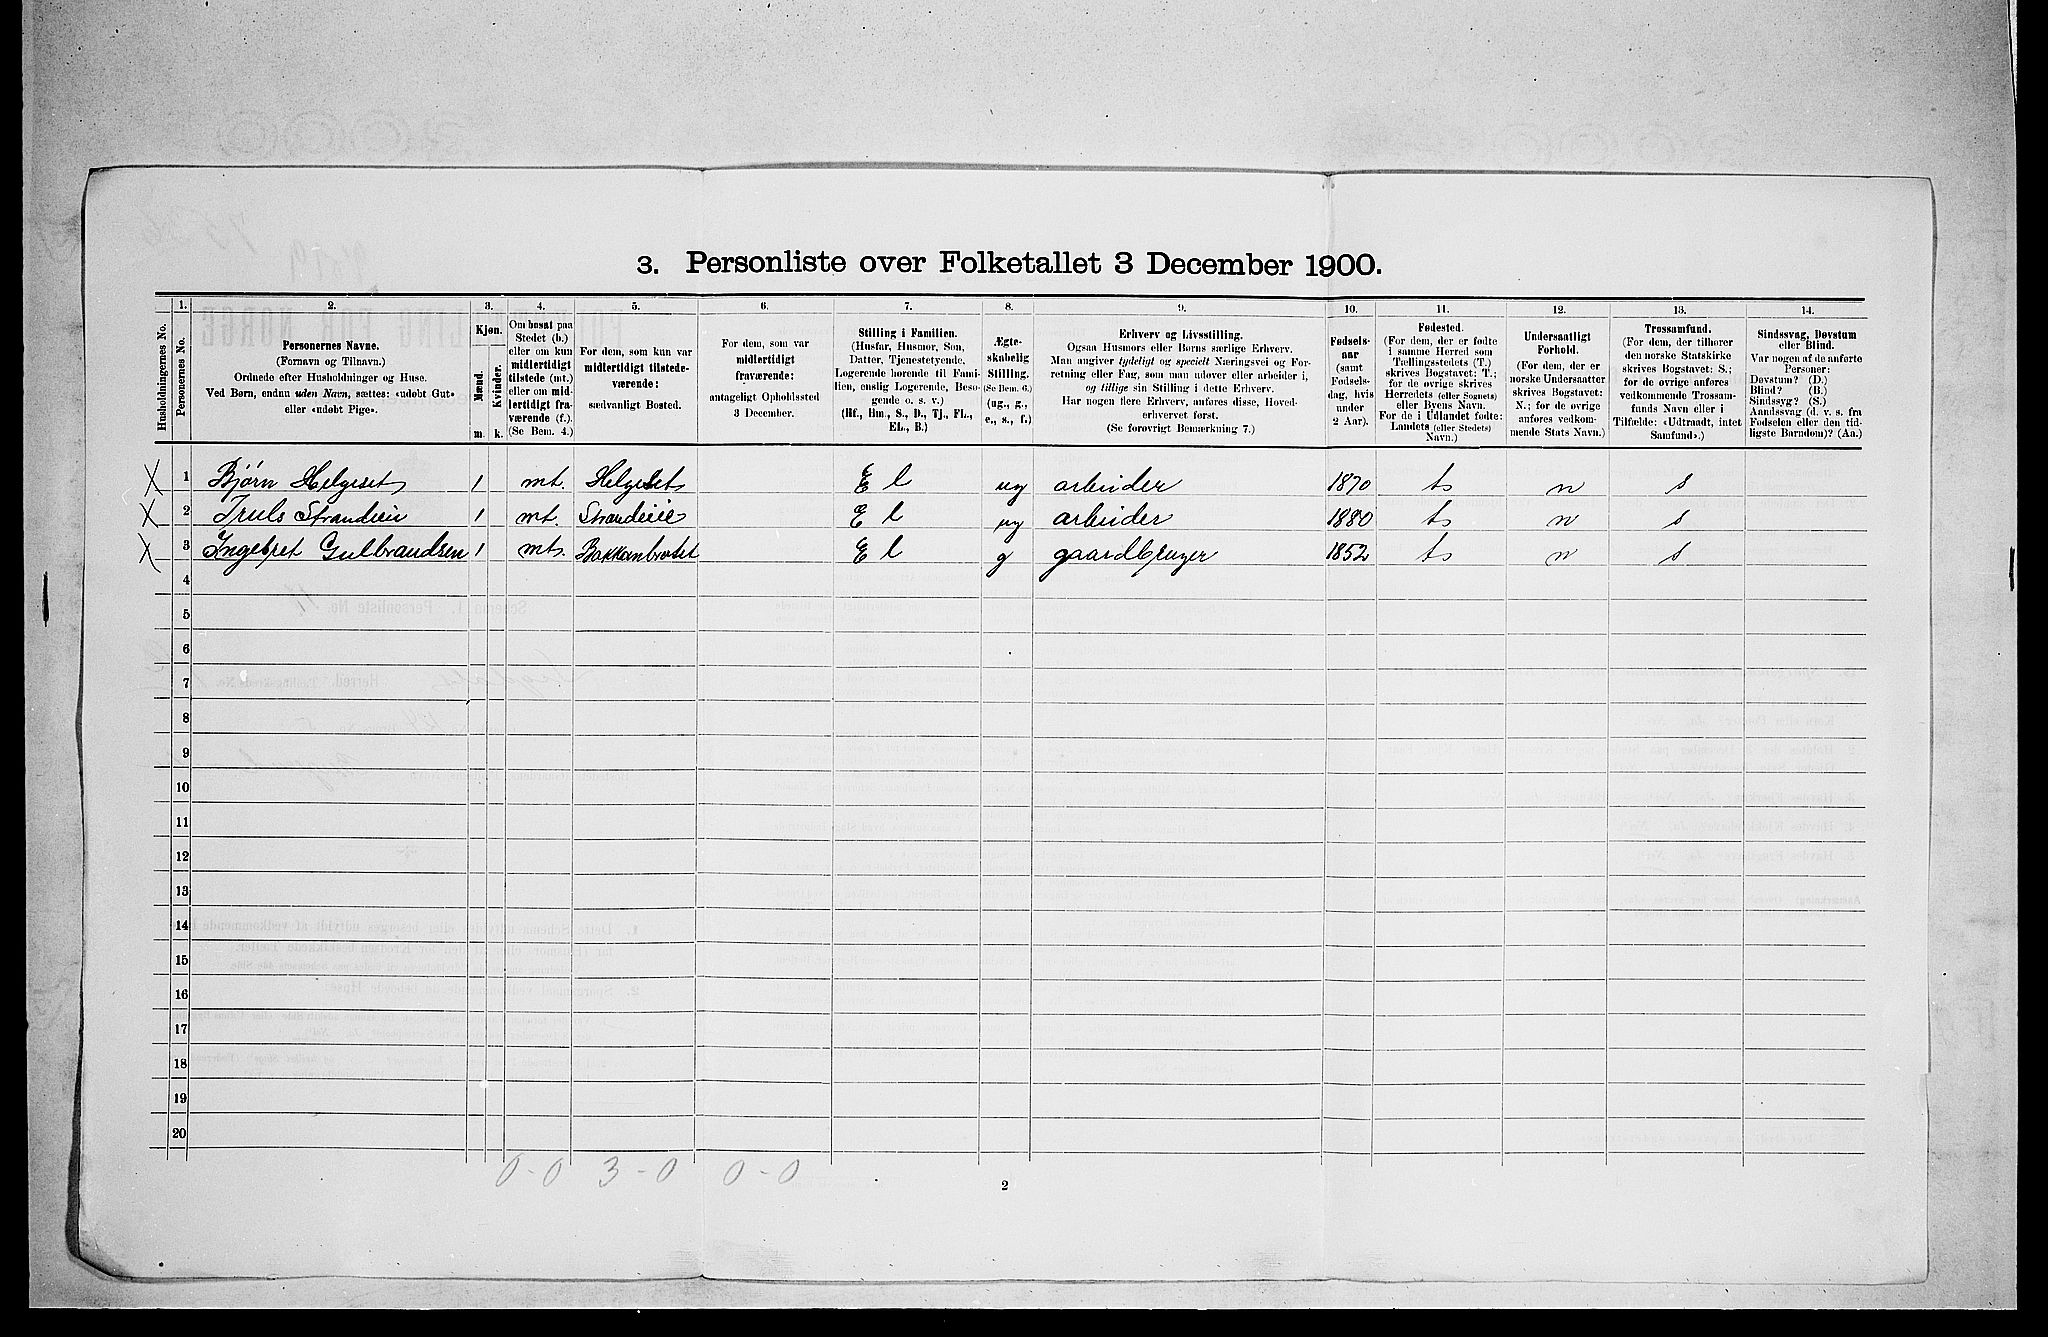 3. Personliste over Folketallet 3 December 1900.
1. 2. 3. 4. 5. 6. 7. 8. 9. 10. 11. 12. 13. 14.
Husholdningernes No.
Personernes No.
Personernes Navne.
(Fornavn og Tilnavn.)
Ordnede efter Husholdninger og Huse.
Ved Børn, endnu uden Navn, sættes: «udøbt Gut»
eller «udøbt Pige».
Kjøn.
Mænd.
Kvinder.
m. k.
Om bosat paa
Stedet (b.)
eller om kun
midlertidigt
tilstede (mt.)
eller om mid-
lertidigt fra-
værende (f.).
(Se Bem. 4.)
For dem, som kun var
midlertidigt tilstede-
værende:
sædvanligt Bosted.
For dem, som var
midlertidigt
fraværende:
antageligt Opholdssted
3 December.
Stilling i Familien.
(Husfar, Husmor, Søn,
Datter, Tjenestetyende,
Logerende hørende til Fami-
lien, enslig Logerende, Besø-
gende o. s. v.)
(Hf., Hm., S., D., Tj., FL.,
EL., B.)
Ægte-
skabelig
Stilling.
(Se Bem. 6.)
(ug., g.,
e., s., f.)
Erhverv og Livsstilling.
Ogsaa Husmors eller Børns særlige Erhverv.
Man angiver tydeligt og specielt Næringsvei og For-
retning eller Fag, som man udøver eller arbeider i,
og tillige sin Stilling i dette Erhverv.
Har nogen flere Erhverv, anføres disse, Hoved-
erhvervet først.
(Se forøvrigt Bemærkning 7.)
Fødsels-
aar
(samt
Fødsels-
dag, hvis
under
2 Aar).
Fødested.
(For dem, der er fødte
i samme Herred som
Tællingsstedets (T.)
skrives Bogstavet: T.;
for de øvrige skrives
Herredets (eller Sognets)
eller Byens Navn.
For de i Udlandet fødte:
Landets (eller Stedets)
Navn.)
Undersaatligt
Forhold.
(For dem, der er
norske Undersaatter
skrives Bogstavet:
N.; for de øvrige
anføres vedkom-
mende Stats Navn.)
Trossamfund.
(For dem, der tilhører
den norske Statskirke
skrives Bogstavet: S.;
for de øvrige anføres
vedkommende Trossam-
funds Navn eller i
Tilfælde: «Udtraadt, intet
Samfund».)
Sindssvag, Døvstum
eller Blind.
Var nogen af de anførte
Personer:
Døvstum? (D.)
Blind? (B.)
Sindssyg? (S.)
Aandssvag (d. v. s. fra
Fødselen eller den tid-
ligste Barndom)? (Aa.)
X 1 Bjørn Helgeset 1 mt. Helgeset E l ug arbeider 1870 t n s
X 2 Truls Strandeie 1 mt. Strandeie E l ug arbeider 1880 t n s
X 3 Ingebret Gulbrandsen 1 mt. Bakkanbrotet E l g gaardbruger 1852 t n s
4
5
6
7
8
9
10
11
12
13
14
15
16
17
18
19
20
0-0 3-0 0-0
2